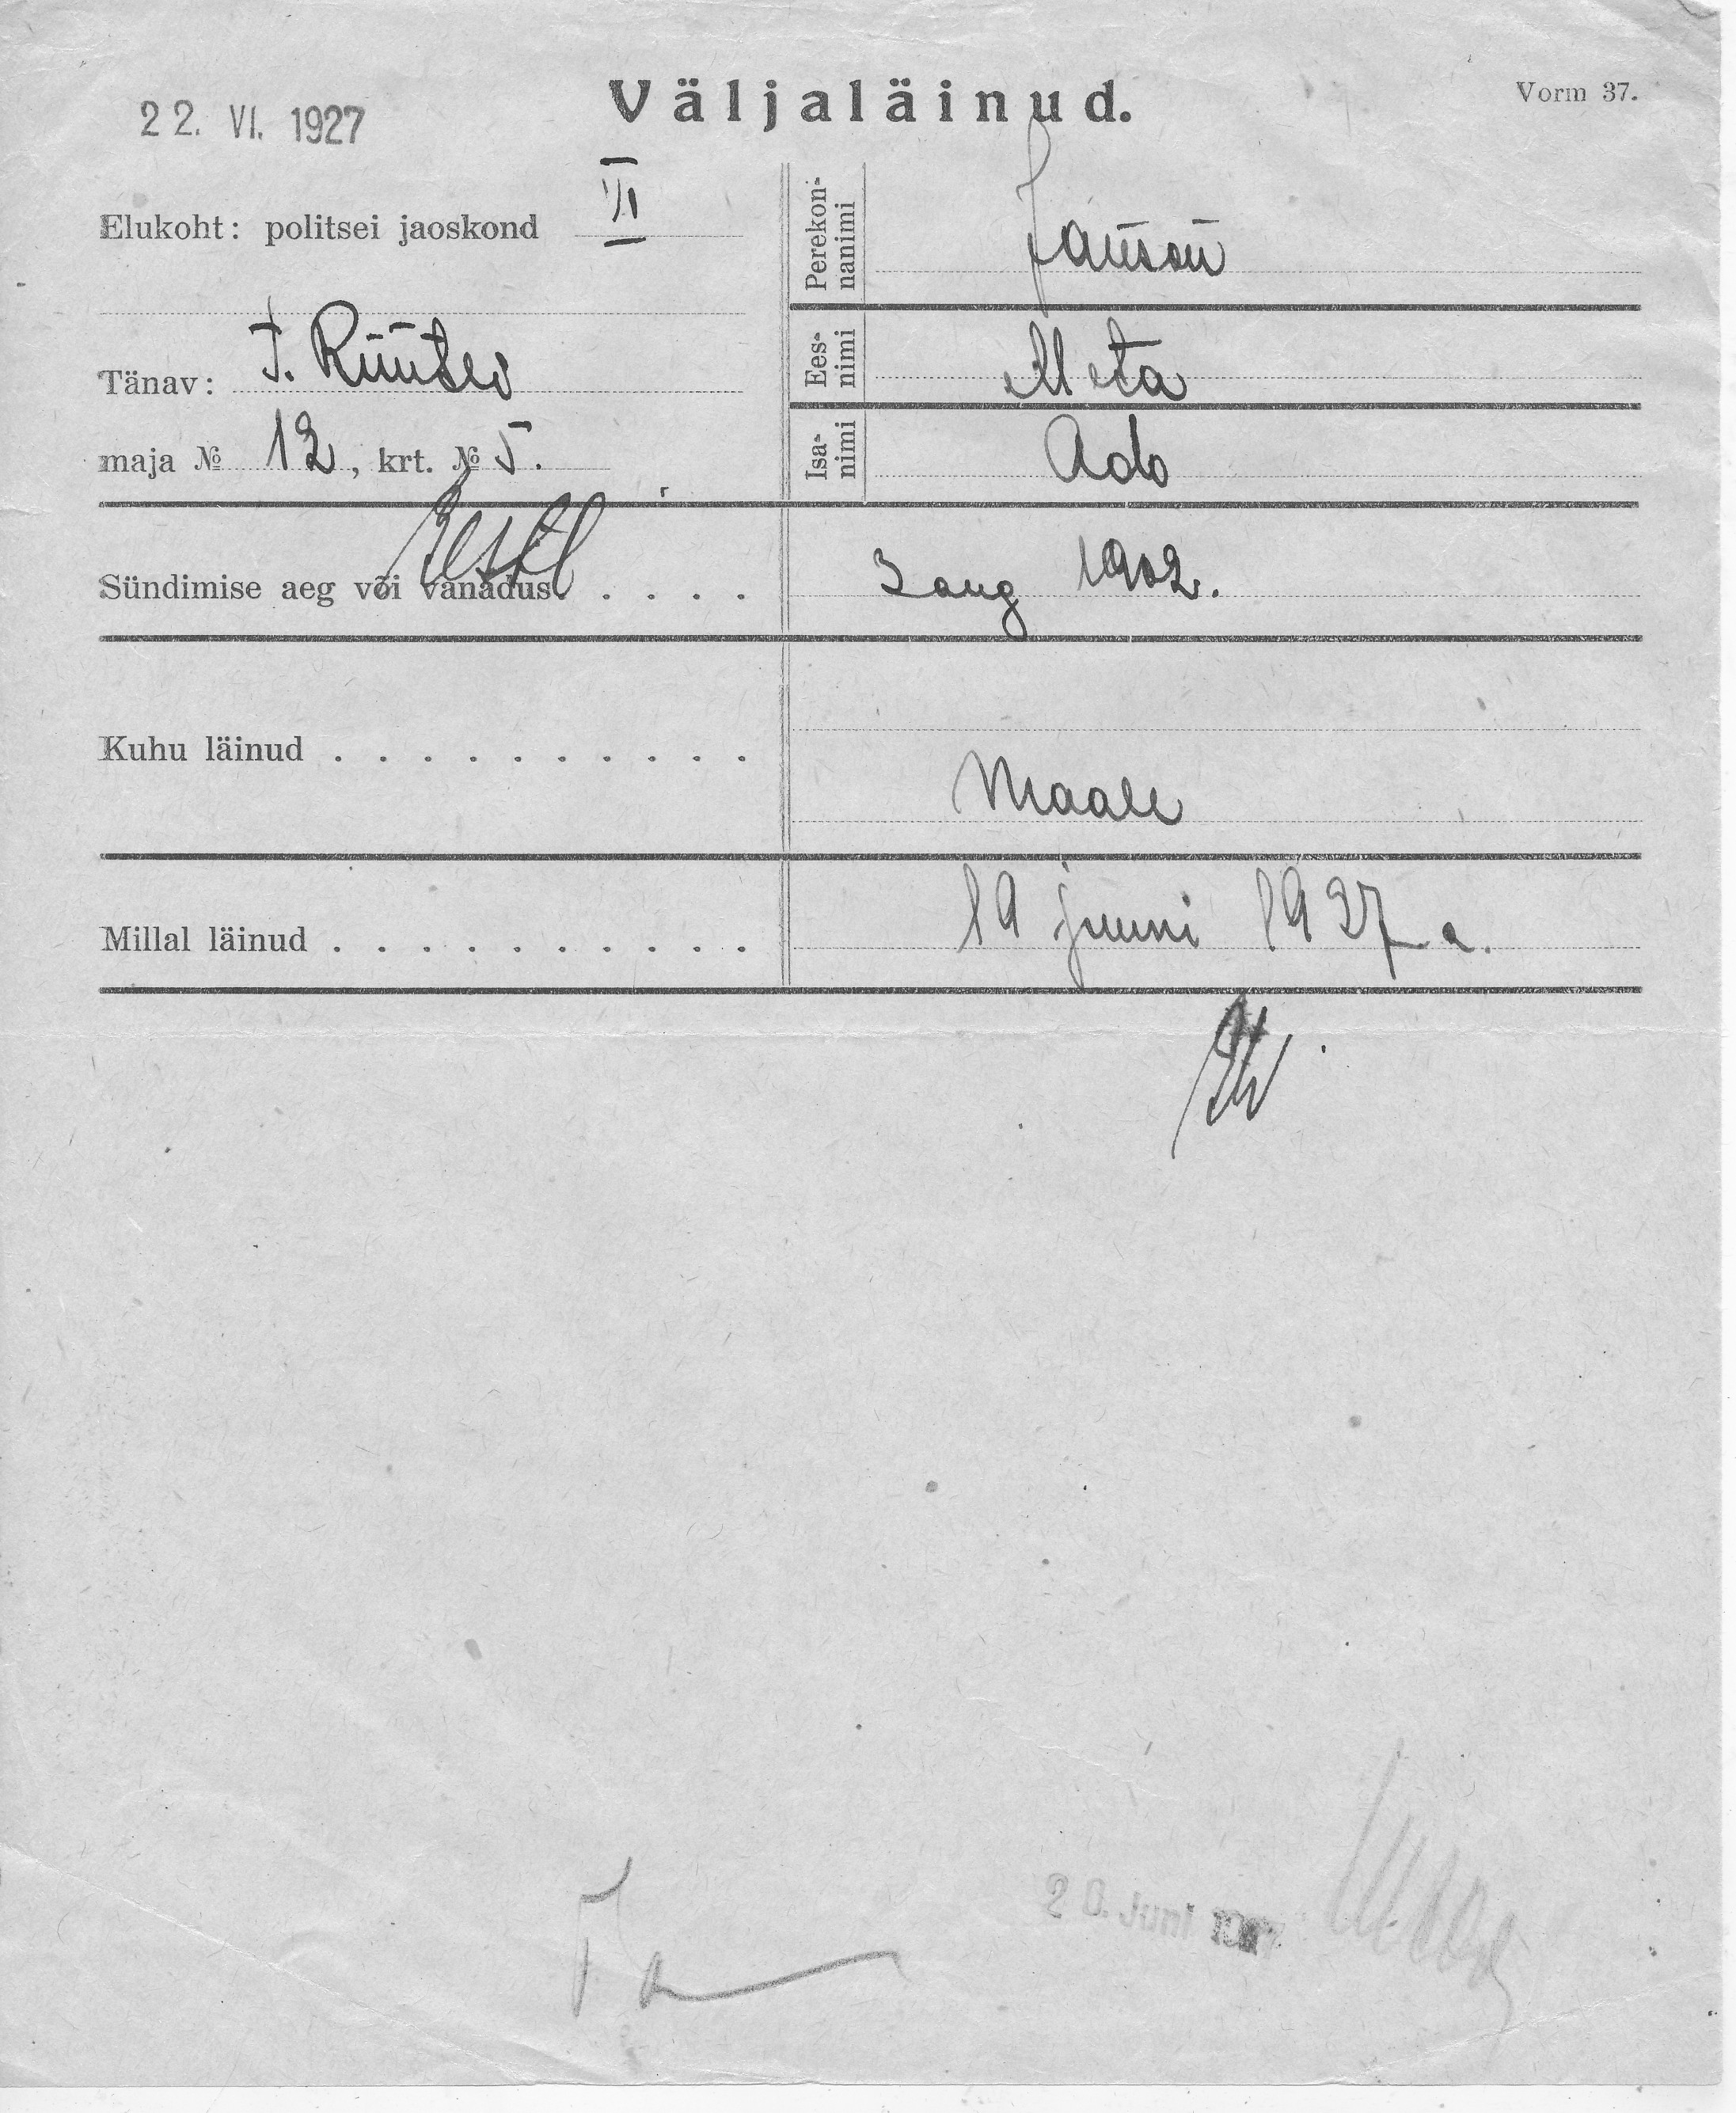 22. VI. 1927
Väljaläinud.
Vorm 37.
Elukoht: politsei jaoskond II
Tänav: J. Rüütel
maja № 12, krt. № 5.
Perekon-
nanimi
Janson
Ees-
nimi
Meta
Isa-
nimi
Ado
Eestl
Sündimise aeg või vanadus. . . . .
3 aug 1902.
Kuhu läinud . . . . . . . . . .
Maale
Millal läinud . . . . . . . . . .
19 juuni 1927 a.
20. Juni 1927